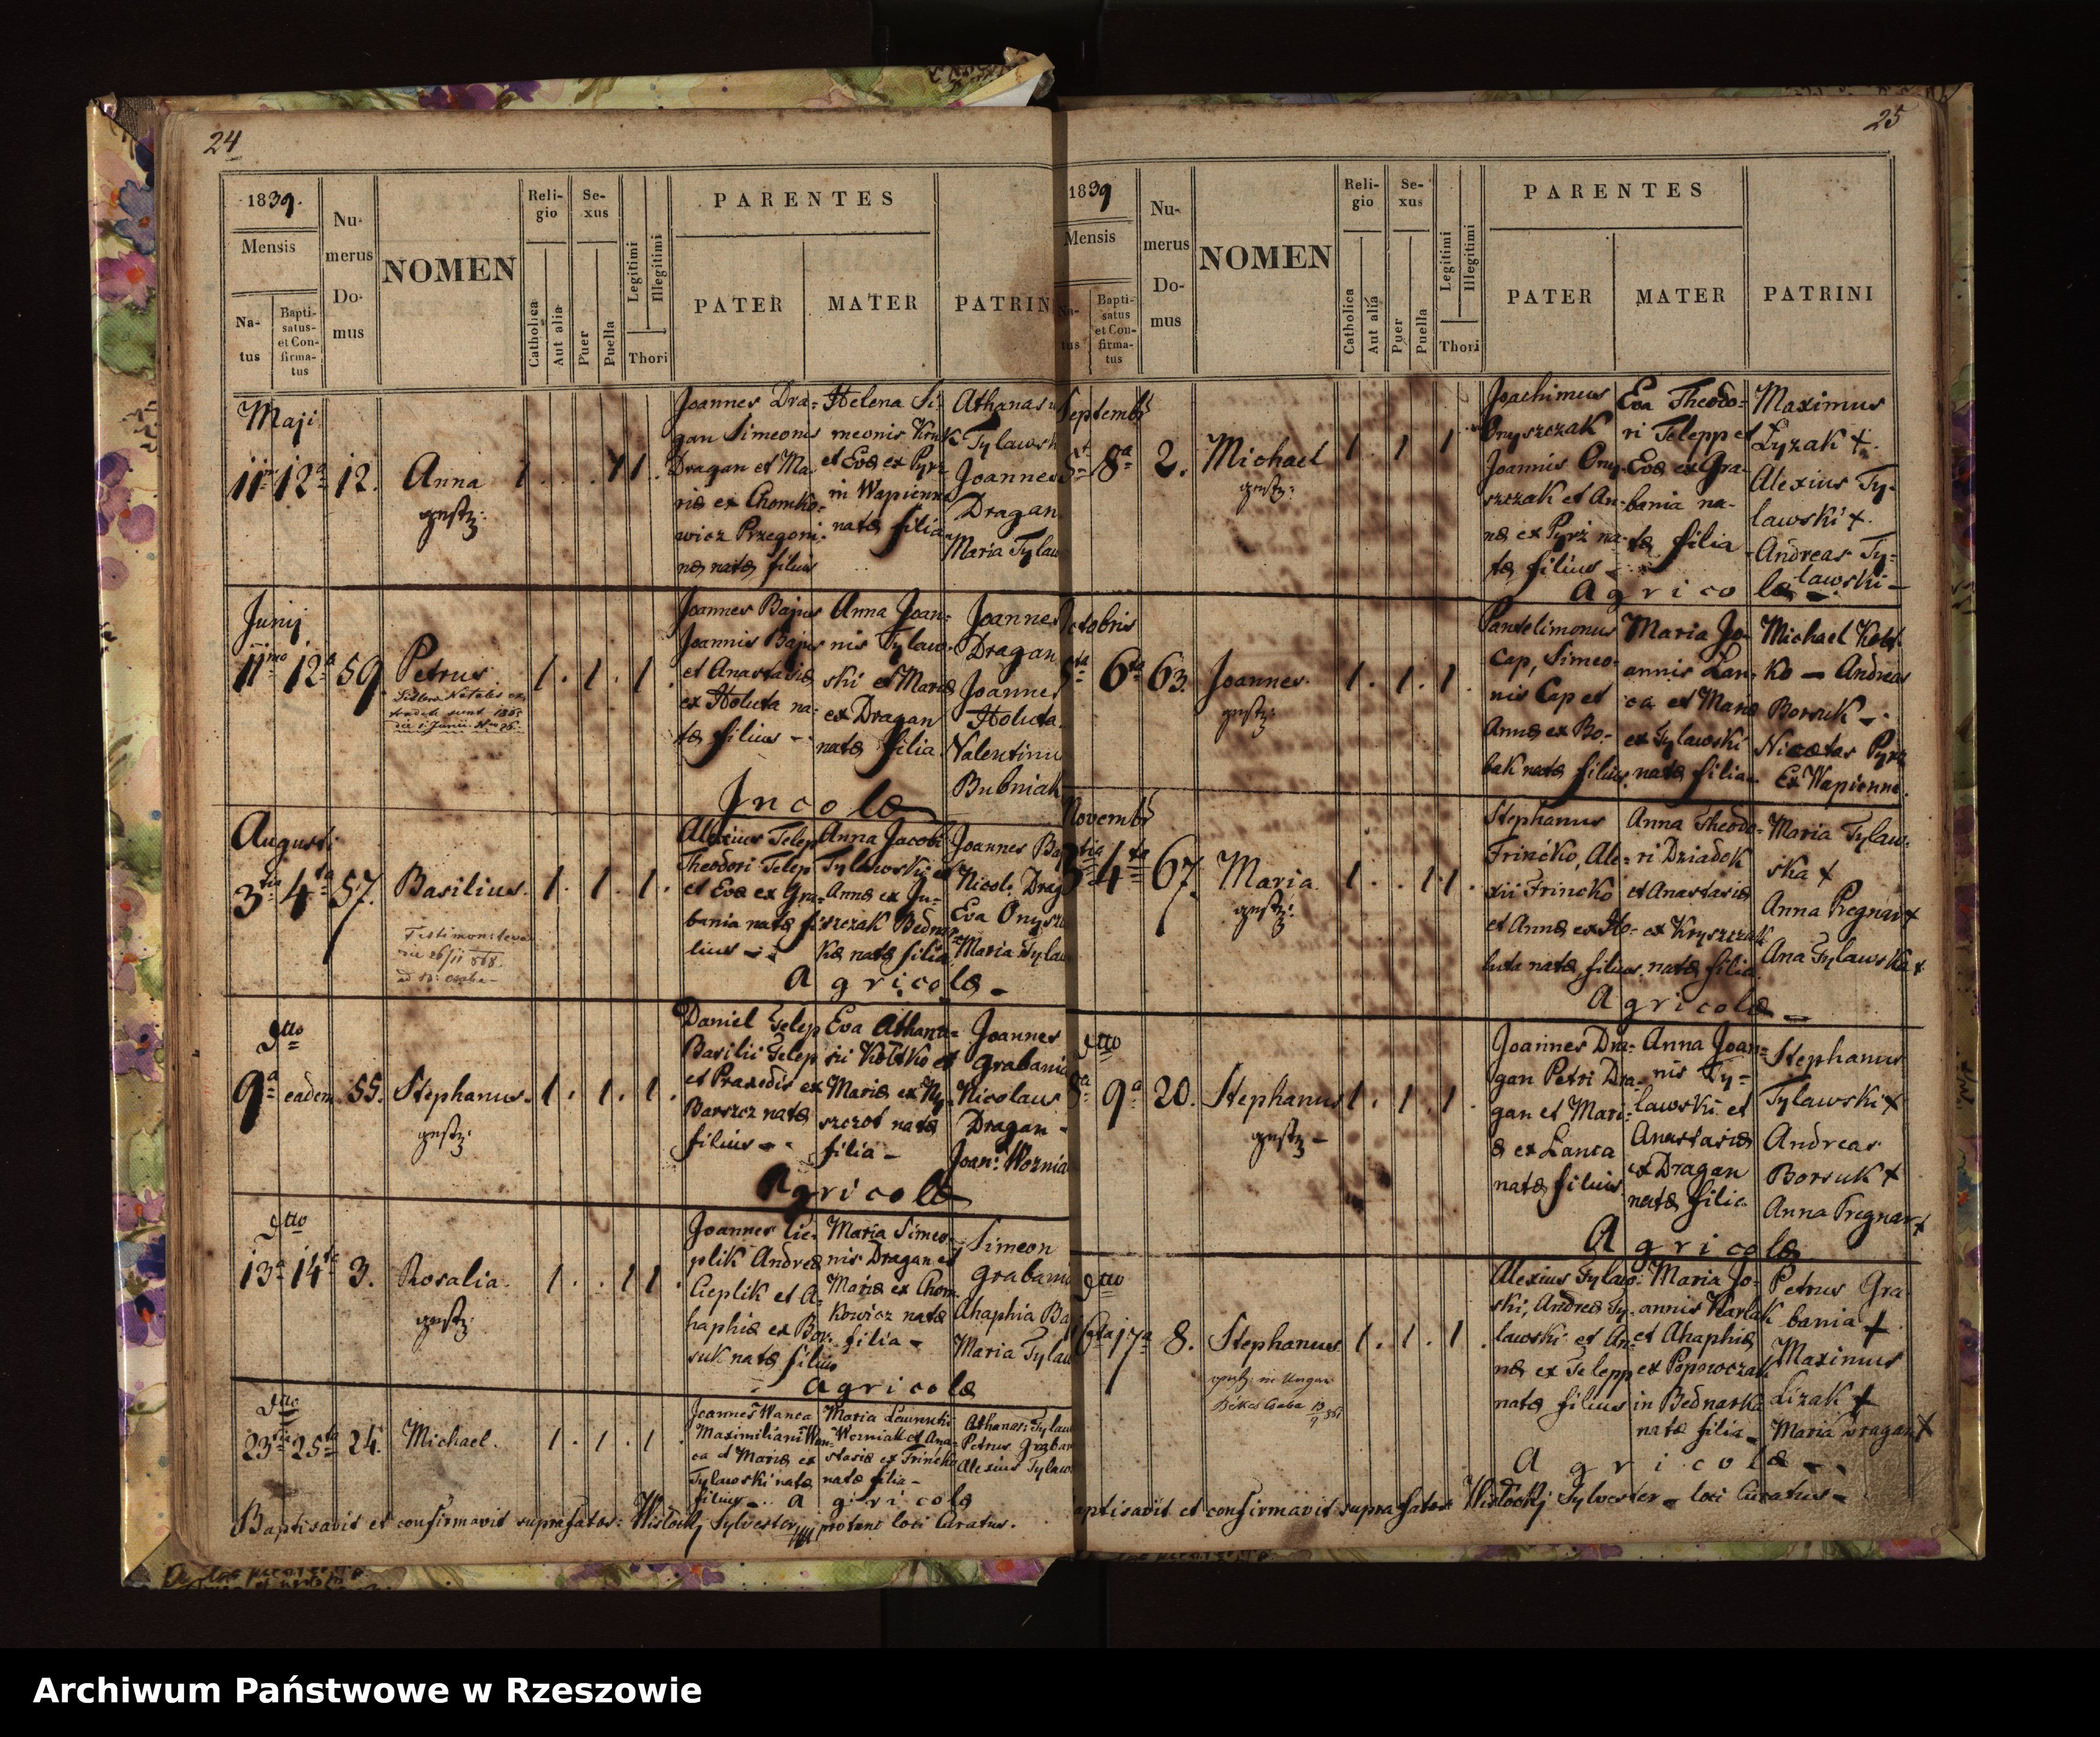 24
1839.
Mensis
Na-
tus
Bapti-
satus-
et Con-
firma-
tus
Nu-
merus
Do-
mus
NOMEN
Reli-
gio
Catholica
Aut alia
Se-
xus
Puer
Puella
Legitimi
Illegitimi
Thori
PARENTES
PATER
MATER
PATRINI
Maji
11ma 12a 12.
Anna
1 1 1
Joannes Dra-
gan Simeonis
Dragan et Ma-
riæ ex Chomko-
wicz Przegoni-
næ natæ filius
Helena Si-
meonis Kruk
et Evæ ex Pyrz
in Wapienne
natæ filia
Athanasi
Tylawski
Joannes
Dragan
Maria Tylaw
Junij
11mo 12a 59
Petrus
1. 1. 1.
Joannes Bajus
Joannis Bajus
et Anastasiæ
ex Holuta na-
tæ filius -
Anna Joan-
nis Tylaw-
ski et Mariæ
ex Dragan
natæ filia
Joannes
Dragan
Joannes
Holuta
Valentinu
Bubniak
Incolæ
Augusti
3tia 4ta 57.
Basilius.
1. 1. 1.
Alexius Telep
Theodori Telep
et Evæ ex Gra-
bania natæ fi-
lius -
Anna Jacobi
Tylawski et
Annæ ex Ju-
szczak Bednar-
kæ natæ filia
Joannes Ba
Nicol: Drag
Eva Onysz
Maria Tylaw
Agricolæ -
dtto
9a eadem 55.
Stephanus.
1. 1. 1.
Daniel Telep
Basilii Telep
et Praxedis ex
Barszcz natæ
filius -
Eva Athana-
sii Kotsko et
Mariæ ex Ny-
szczot natæ
filia -
Joannes
Grabania
Nicolaus
Dragan -
Joan: Woznia
Agricolæ
dtto
13a 14ta 3.
Rosalia.
1. 1 1
Joannes Cie-
plik Andreæ
Cieplik et A-
haphiæ ex Bor-
suk natæ filius
Maria Simeo-
nis Dragan et
Mariæ ex Chom-
kowicz natæ
filia -
Simeon
Grabania
Ahaphia Ba
Maria Tylaw
Agricolæ
dtto
23tia 25ta 24.
Michael.
1. 1. 1.
Joannes Wanca
Maximiliani Wan-
ca et Mariæ ex
Tylawski natæ
filius -
Maria Laurentii
Worniak et Ana-
stasiæ ex Frincko
natæ filia -
Athanasi Tylaw
Petrus Graban
Alexius Tylaw
agricolæ
Baptisavit et confirmavit suprafatos: Wisłocky Sylvester loci Curatus.
25
1839
Mensis
Na-
tus
Bapti-
satus
et Con-
firma-
tus
Nu-
merus
Do-
mus
NOMEN
Reli-
gio
Catholica
Aut alia
Se-
xus
Puer
Puella
Legitimi
Illegitimi
Thori
PARENTES
PATER
MATER
PATRINI
Septembr
8a 2.
Michael
1. 1 1
Joachimus
Onyszczak
Joannis Ony-
szczak et An-
næ ex Pyrz na-
tæ filius -
Eva Theodo-
ri Telepp et
Evæ ex Gra-
bania na-
tæ filia -
Maximus
Lyzak +.
Alexius Ty-
lawski +.
Andreas Ty-
lawski -
Agricolæ -
Octobris
5ta 6ta 63.
Joannes.
1. 1. 1.
Pantelimonus
Cap, Simeo-
nis Cap et
Annæ ex Bo-
bak natæ filius
Maria Jo-
annis Lan-
ca et Mariæ
ex Tylawski
natæ filia -
Michael Kots-
ko - Andreas
Borsuk -
Nicetas Pyrz
Ex Wapienne.
Novembr
3tia 4ta 67.
Maria
1. 1 1.
Stephanus
Frincko, Ale-
xii Frincko
et Annæ ex Ho-
luta natæ filius.
Anna Theodo-
ri Dziadok
et Anastasiæ
ex Kryszczak
natæ filia
Maria Tylaw-
ska +
Anna Pregnar +
Ana Tylawska +
Agricolæ -
dtto
8a 9a 20.
Stephanus
1. 1. 1.
Joannes Dra-
gan Petri Dra-
gan et Mari-
æ ex Lanca
natæ filius
Anna Joan-
nis Ty-
lawski et
Anastasiæ
ex Dragan
natæ filia
Stephanus
Tylawski +
Andreas
Borsuk +
Anna Pregnar +
Agricolæ
dtto
16ta 17a 8.
Stephanus
1. 1. 1.
Alexius Tylaw-
ski, Andreæ Ty-
lawski et An-
næ ex Telepp
natæ filius
Maria Jo-
annis Karlak
et Ahaphiæ
ex Popowczak
in Bednarka
natæ filia -
Petrus Gra-
bania +
Maximus
Lizak +
Maria Dragan +
Agricolæ -
aptisavit et confirmavit suprafatos Wisłocky Sylvester - loci Curatus -
Archiwum Państwowe w Rzeszowie